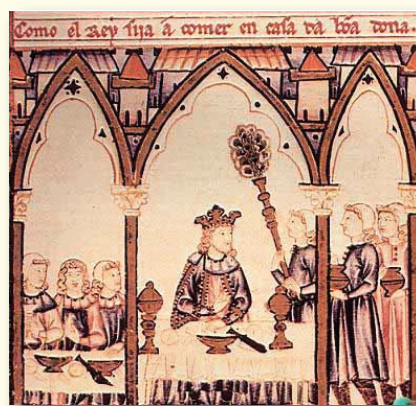 Como el Rey sija a comer en casa da bõa dona.